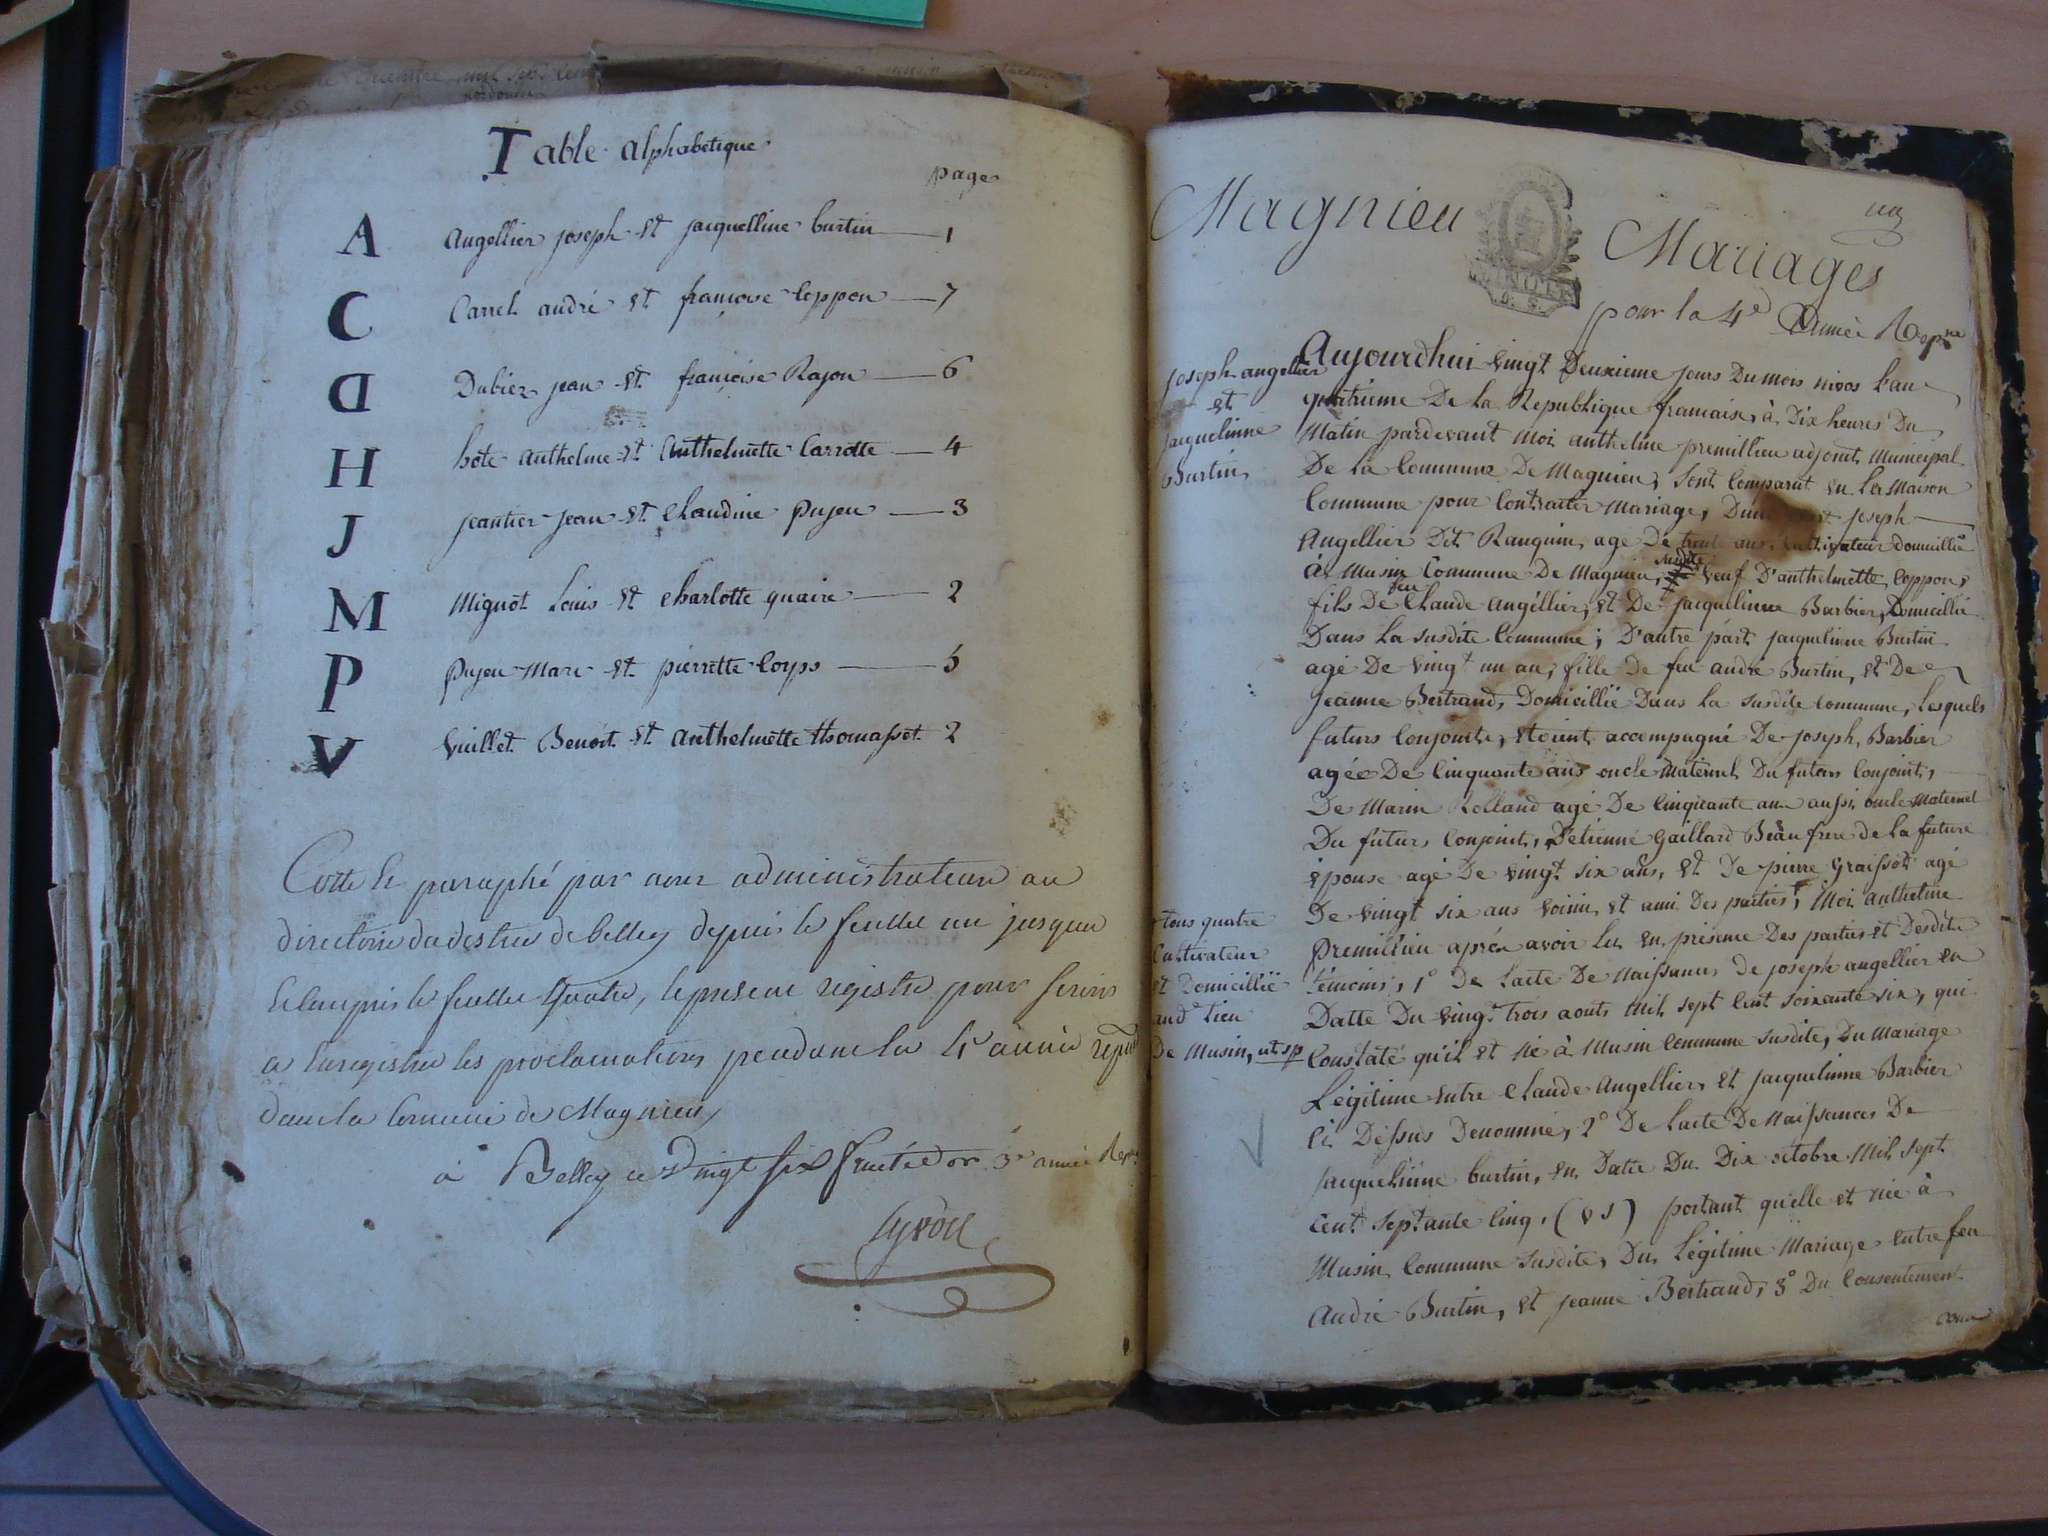 Table alphabetique
page
A Angellier joseph et jacquelline burtin 1
C Carrel andré et francoise Coppon 7
D Dubiez jean et françoise Rajon 6
H hote anthelme et Anthelmette Carrotte 4
J jeantier jean et Claudine Pujeu 3
M Mignot Louis et charlotte quaire 2
P Pujeu Marc et pierrette Corps 5
V Vuillet Benoit et anthelmette thomasset 2
Cotte et paraphé par nous administrateur au
directoire du destric de belley depuis le feuillet un jusquau
et compris le feuillet quatre, le present registre pour servir
a enregistrer les proclamations pendant la 4e année
dans la Comune de Magnieu,
a Belley ce vingt six fructidor 3e année
Magnieu Mariages
pour la 4e Année
joseph angellier
et
jacquelinne
Burtin
Aujourdhui vingt Deuxieme jours Du mois nivos lan
quatrieme De la Republique francaise, à Dix heures Du
Matin pardevant Moi anthelme premillieu adjoint Municipal
De la Commune De Magnieu, sont Comparut en la Maison
Commune pour Contracter Mariage, joseph
Angellier Dit Ranquin, age De ans, Cultivateur Domicillié
à Musin Commune De Magnieu, susdite veuf D'anthelmette Coppon,
fils De feu Claude angéllier, et De jacquelinne Barbier, Domicillié
Dans la susdite Commune; D'autre part jacquelinne Burtin
agé De vingt un an, fille De feu andré Burtin, et De
Jeanne Bertrand, Domicillié Dans la susdite Commune, Lesquels
futurs Conjoints, etoient accompagné De joseph Barbier
agée De Cinquante ans oncle Maternel Du futurs Conjoint,
De Marin Rolland agé De Cinquante ans aussi oncle Maternel
Du futurs Conjoint, D'etienne Gaillard Beau frere de la future
épouse agé De vingt six ans, et De pierre Graissot agé
De vingt six ans voisin et ami Des parties, Moi anthelme
tous quatre
Cultivateur
et Domicillié
De Musin,
Premillieu aprés avoir lu en présence Des parties et Desdits
témoins, 1° De lacte De Naissances de joseph angellier en
Datte Du vingt trois aouts Mil sept Cent soixante six, qui
Constaté qu'il et né à Musin Commune susdite, Du Mariage
Légitime entre Claude Angellier, et jacquelinne Barbier
Ci Dessus Denommé, 2° De lacte De Naissances De
jacquelinne burtin, en Datte Du Dix octobre Mil sept
Cent septante Cinq, (v s) portant qu'elle et née à
Musin Commune susdite, Du Légitime Mariage entre feu
André Burtin, et jeanne Bertrand, 3° Du Consentement